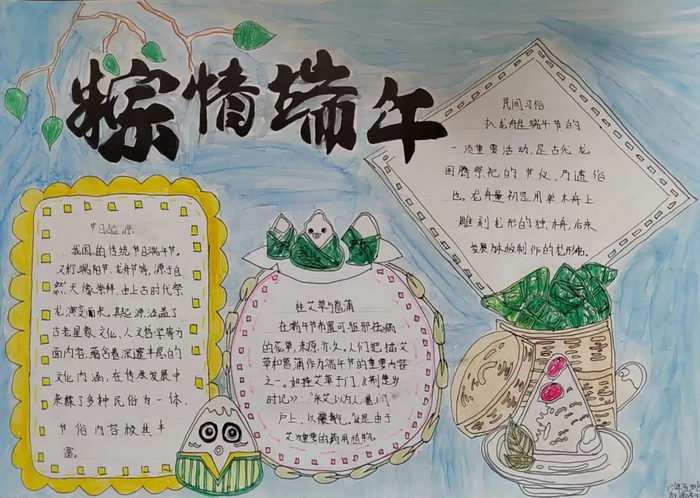 粽情端午
节日起源
我国的传统节日端午节。
又称端阳节、龙舟节等，源于自
然天象崇拜，由上古时代祭
龙演变而来，起源涵盖了
古老星象文化、人文哲学等方
面内容，蕴含着深邃丰厚的
文化内涵，在传承发展中
杂糅了多种民俗为一体，
节俗内容极其丰
富。
挂艾草与菖蒲
在端午节布置可驱邪祛病
的花草，来源亦久。人们把插艾
草和菖蒲作为端午节的重要内容
之一。如挂艾草于门，《荆楚岁
时记》"采艾以为人，悬门
户上，以禳毒气。"这是由于
艾为重要的药用植物。
民间习俗
扒龙舟是端午节的
一项重要活动，是古代龙
图腾祭祀的节仪，乃遗俗
也。龙舟最初是用单木舟上
雕刻龙形的独木舟，后来
发展为木板制作的龙形船。